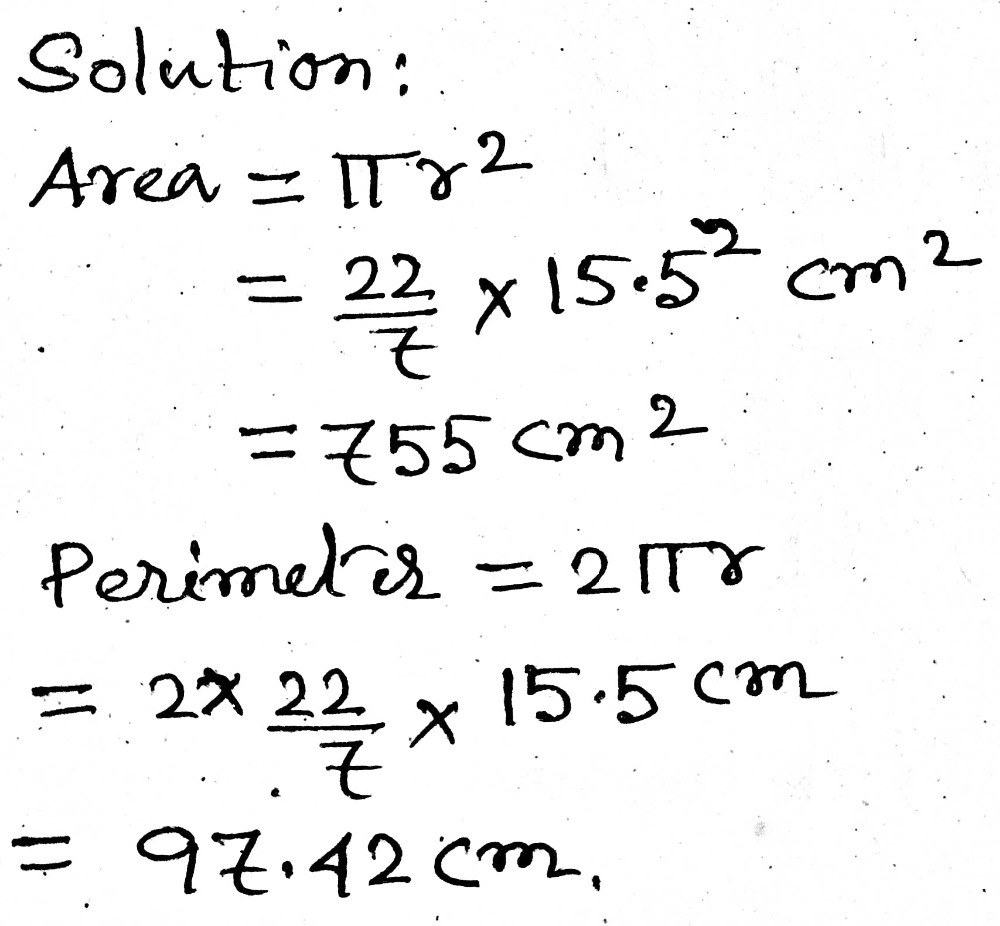 Solution:
Area = πr²
= 22/7 × 15.5² cm²
= 755 cm²
Perimeter = 2πr
= 2× 22/7 × 15.5 cm
= 97.42 cm.